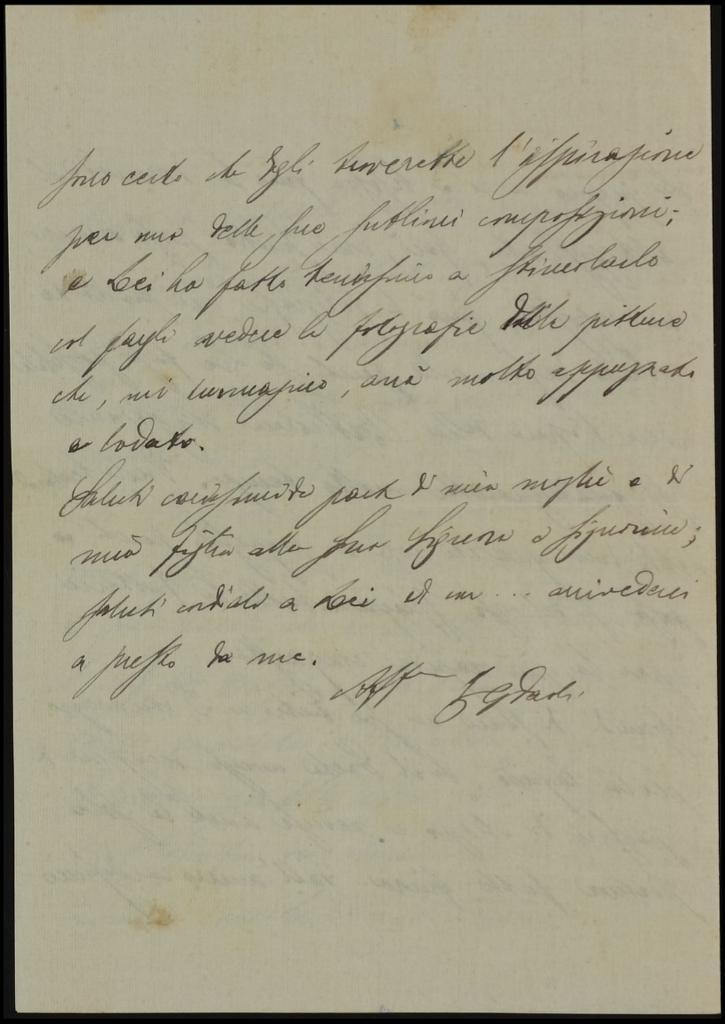 sono certo che Egli troverebbe l'ispirazione
per una delle sue sublimi composizioni;
e Lei ha fatto benissimo a stimolarlo
col fargli vedere le fotografie delle pitture
che, mi immagino, avrà molto apprezzato
e lodato.
Saluti carissimi da parte di mia moglie e di
mia figlia alla Sua Signora e Signorine;
saluti cordiali a Lei ed un ... arrivederci
a presto da me.
Aff